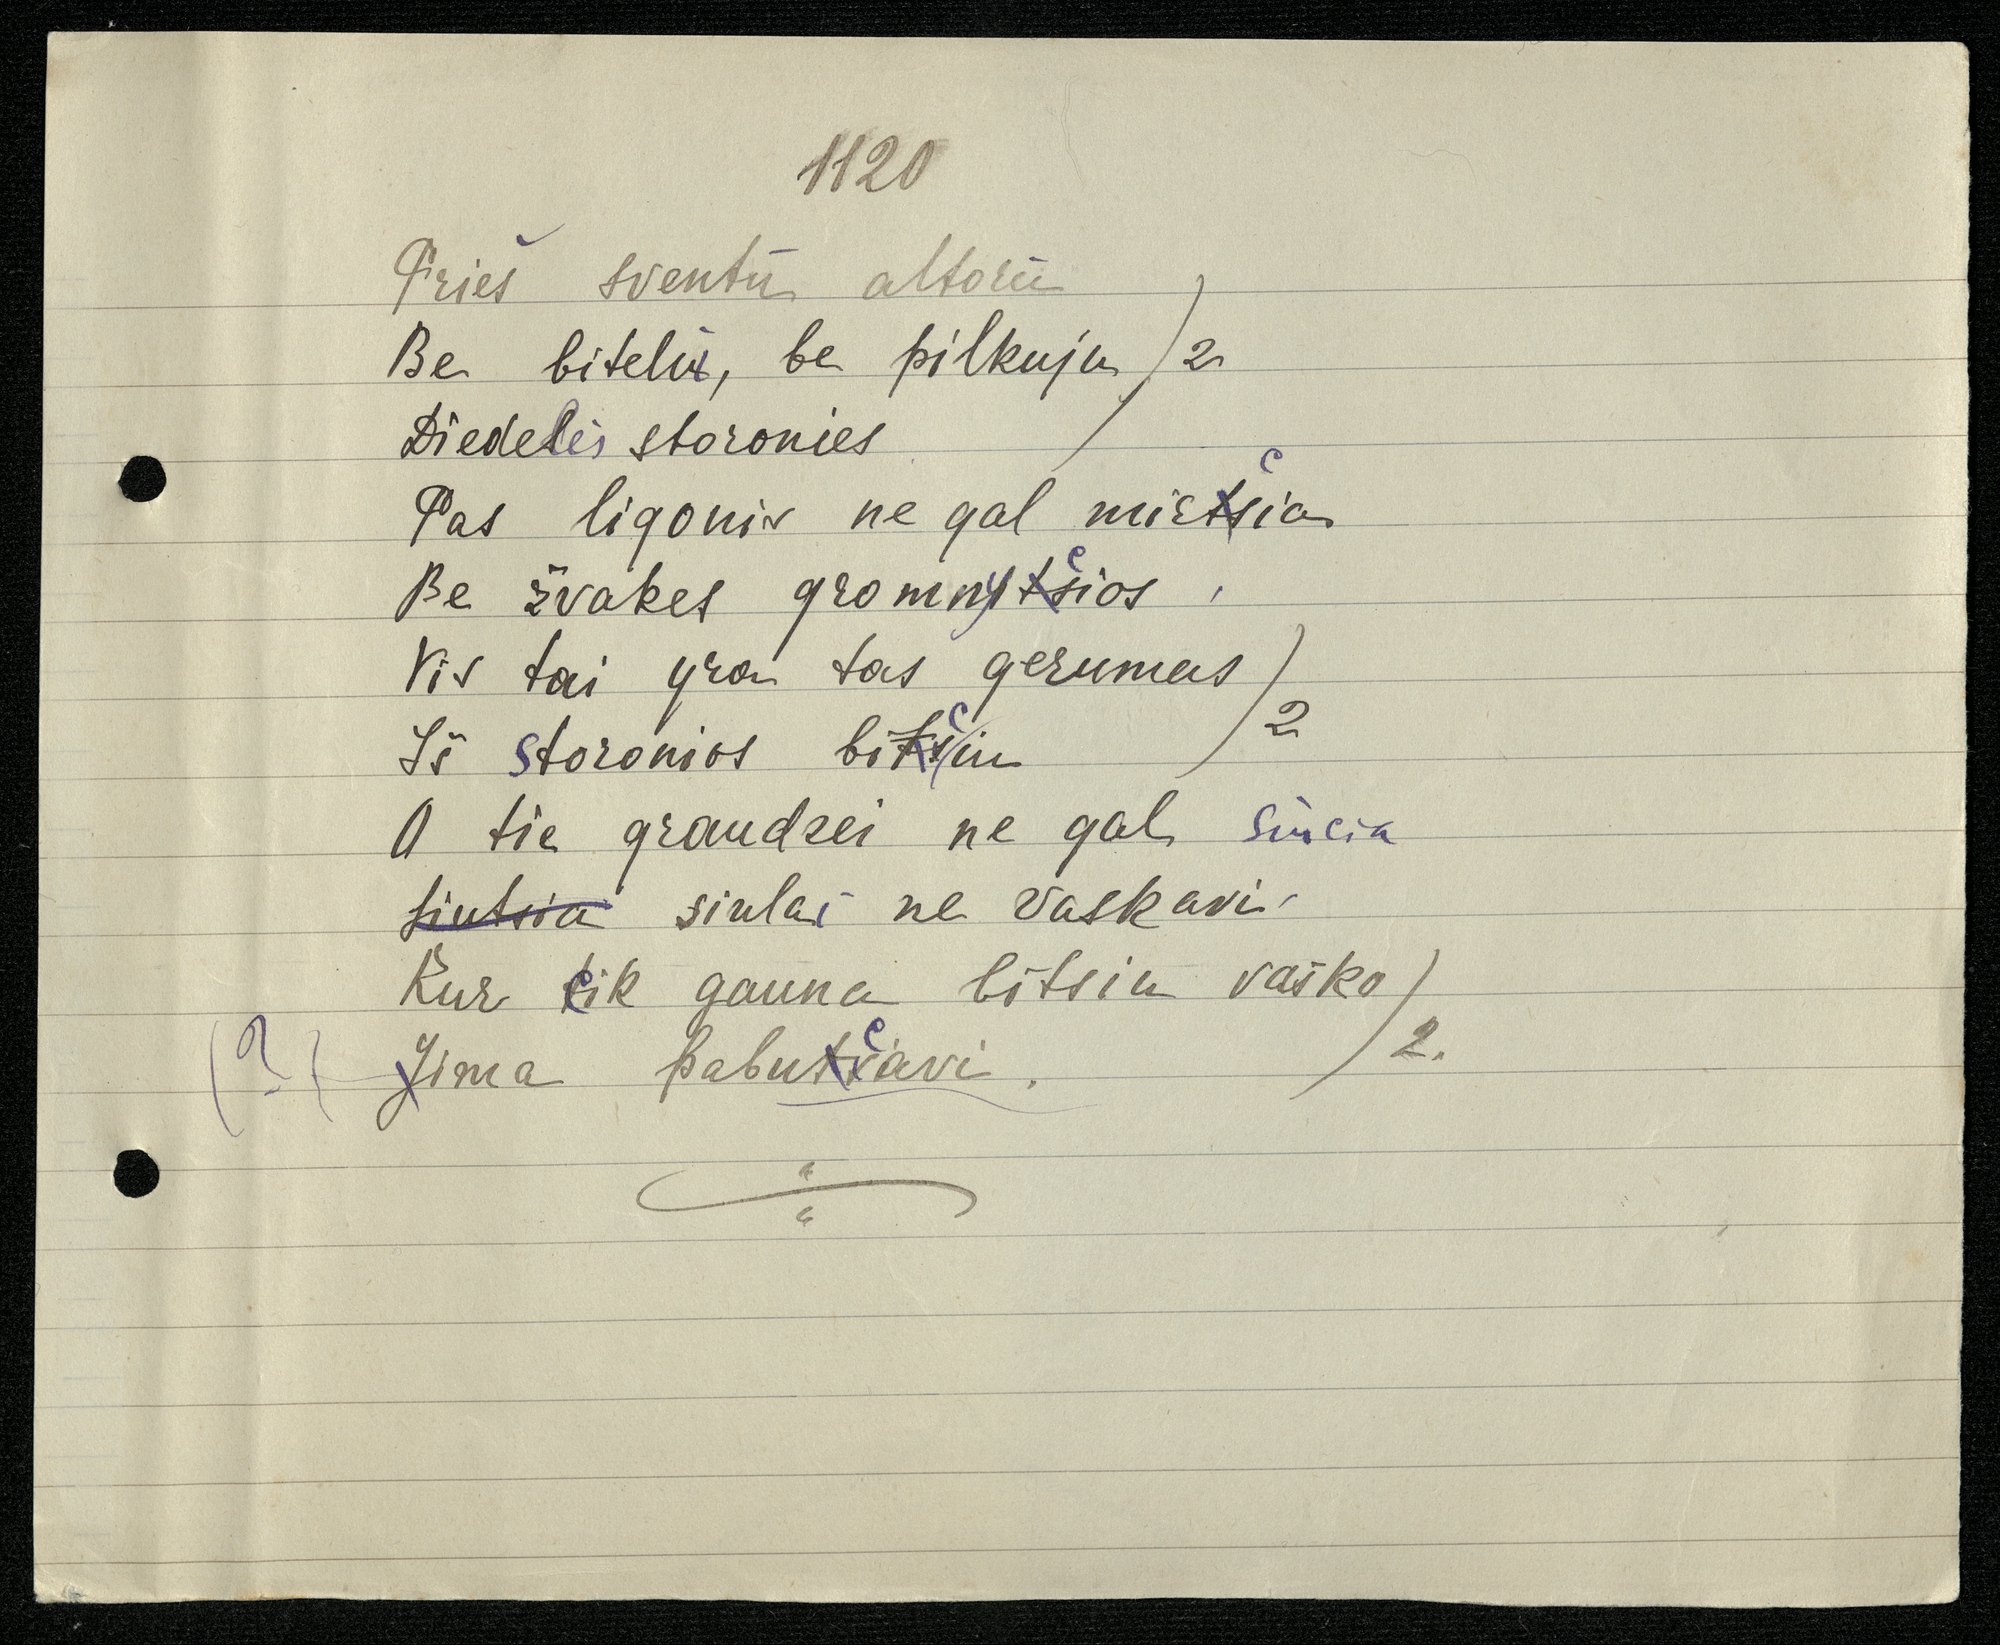 1120
Prieš šventū altorū
Be bitelū, be pilkuju )2
Diedelės storonies
Pas ligonis ne gal mirčia
Be žvakes gromnyčios,
Vis tai yra tas gerumas )2
Iš storonios bičiu
A tie graudzei ne gal siučia
siutsia siulai ne vaskavi
Kur tik gauna bitsiu vaško )2.
(?) Jima pabučavi.